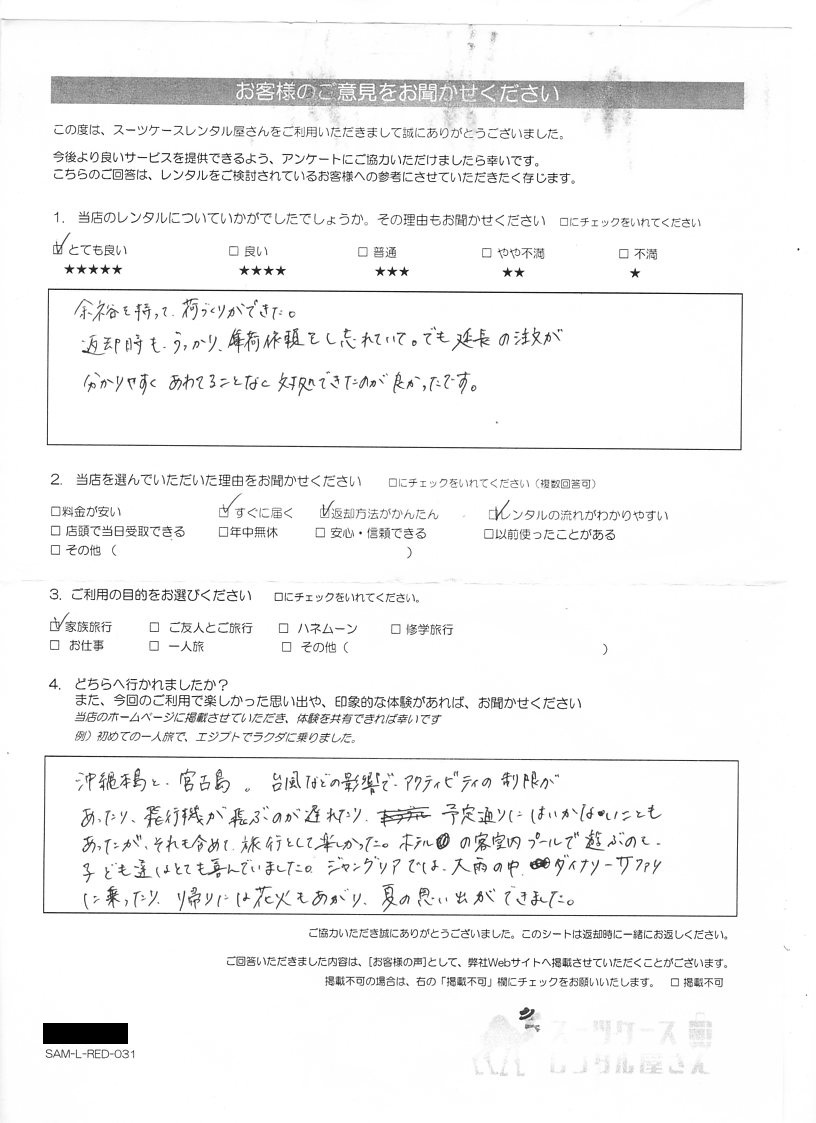 お客様のご意見をお聞かせください
この度は、スーツケースレンタル屋さんをご利用いただきまして誠にありがとうございました。
今後より良いサービスを提供できるよう、アンケートにご協力いただけましたら幸いです。
こちらのご回答は、レンタルをご検討されているお客様への参考にさせていただきたく存じます。
1. 当店のレンタルについていかがでしたでしょうか。その理由もお聞かせください □にチェックをいれてください
☑とても良い □ 良い □ 普通 □ やや不満 □ 不満
★★★★★ ★★★★ ★★★ ★★ ★
余裕を持って、荷づくりができた。
返却時も、うっかり、集荷依頼をし忘れていて。でも延長の注文が
分かりやすく あわてることなく 対処できたのが良かったです。
2. 当店を選んでいただいた理由をお聞かせください □にチェックをいれてください（複数回答可）
□料金が安い ☑すぐに届く ☑返却方法がかんたん ☑レンタルの流れがわかりやすい
□ 店頭で当日受取できる □年中無休 □ 安心・信頼できる □以前使ったことがある
□ その他（ ）
3. ご利用の目的をお選びください □にチェックをいれてください。
☑家族旅行 □ ご友人とご旅行 □ ハネムーン □ 修学旅行
□ お仕事 □ 一人旅 □ その他（ ）
4. どちらへ行かれましたか？
また、今回のご利用で楽しかった思い出や、印象的な体験があれば、お聞かせください
当店のホームページに掲載させていただき、体験を共有できれば幸いです
例）初めての一人旅で、エジプトでラクダに乗りました。
沖縄本島と、宮古島。台風などの影響で、アクティビティの制限が
あったり、飛行機が飛ぶのが遅れたり、予定通りにはいかないことも
あったが、それも含めて、旅行として楽しかった。ホテルの客室内プールで遊ぶのも、
子ども達はとても喜んでいました。ジャングリアでは、大雨の中、ダイナソーサファリ
に乗ったり、帰りには花火もあがり、夏の思い出ができました。
ご協力いただき誠にありがとうございました。このシートは返却時に一緒にお返しください。
ご回答いただきました内容は、[お客様の声]として、弊社Webサイトへ掲載させていただくことがございます。
掲載不可の場合は、右の「掲載不可」欄にチェックをお願いいたします。 □ 掲載不可
SAM-L-RED-031
スーツケース
レンタル屋さん